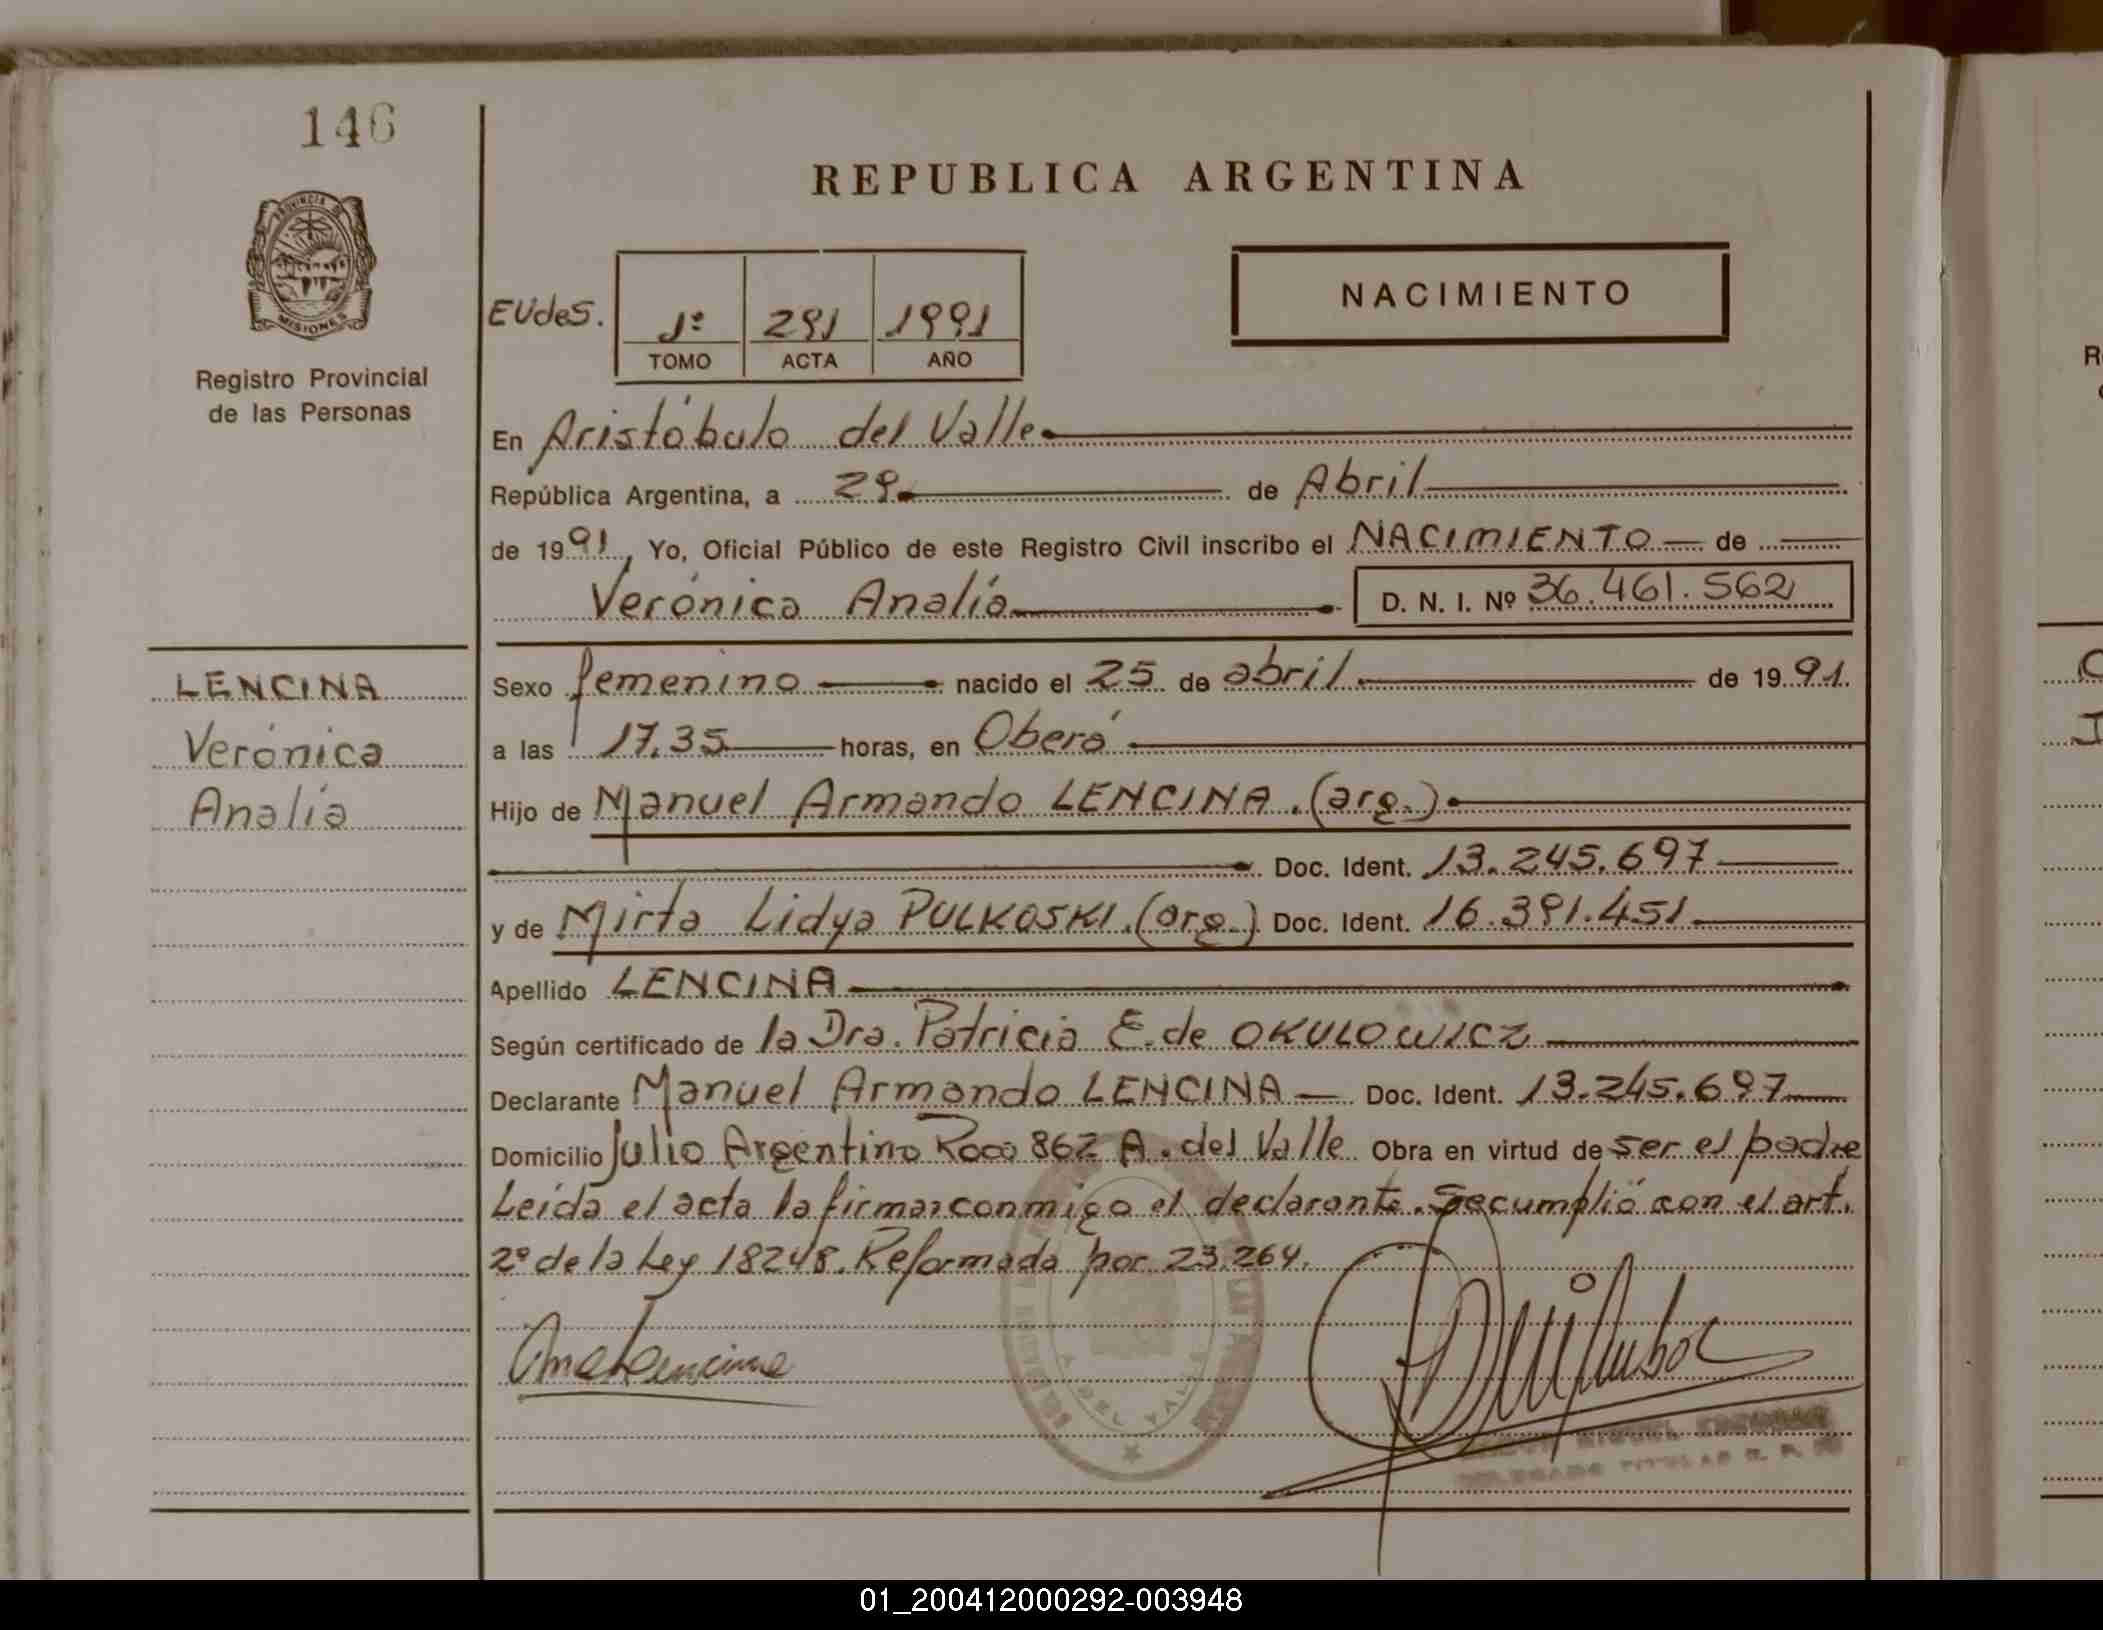 146
REPUBLICA ARGENTINA
PROVINCIA DE
MISIONES
Registro Provincial
de las Personas
EUdeS.
1º 291 1991
TOMO ACTA AÑO
NACIMIENTO
En Aristóbulo del Valle
República Argentina, a 29 de Abril
de 1991, Yo, Oficial Público de este Registro Civil inscribo el NACIMIENTO de
Verónica Analía D. N. I. Nº 36.461.562
LENCINA
Verónica
Analía
Sexo femenino nacido el 25 de abril de 1991.
a las 17.35 horas, en Oberá
Hijo de Manuel Armando LENCINA. (arg.)
Doc. Ident. 13.245.697
y de Mirta Lidya PULKOSKI. (arg.) Doc. Ident. 16.391.451
Apellido LENCINA
Según certificado de la Dra. Patricia E. de OKULOWICZ
Declarante Manuel Armando LENCINA Doc. Ident. 13.245.697
Domicilio Julio Argentino Roca 862 A. del Valle Obra en virtud de ser el padre
Leída el acta la firma conmigo el declarante. Se cumplió con el art.
2º de la Ley 18248. Reformada por 23.264.
Lencina
MIGUEL
DELEGADO TITULAR R. P.
01_200412000292-003948
R